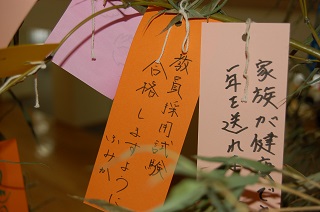 教員採用試験
合格しますように
ふみか
家族が健康で
一年を送れま